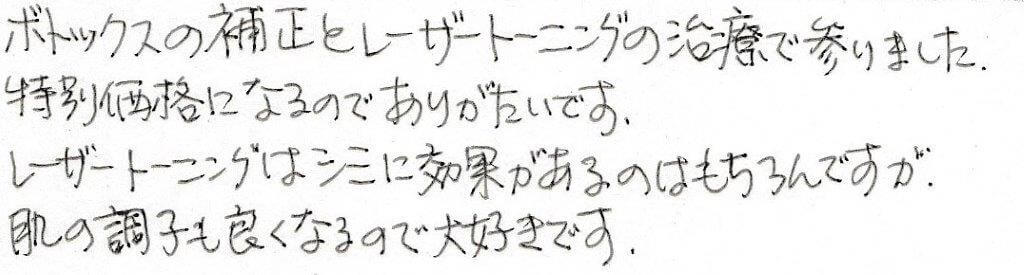 ボトックスの補正とレーザートーニングの治療で参りました.
特別価格になるのでありがたいです.
レーザートーニングはシミに効果があるのはもちろんですが.
肌の調子も良くなるので大好きです.